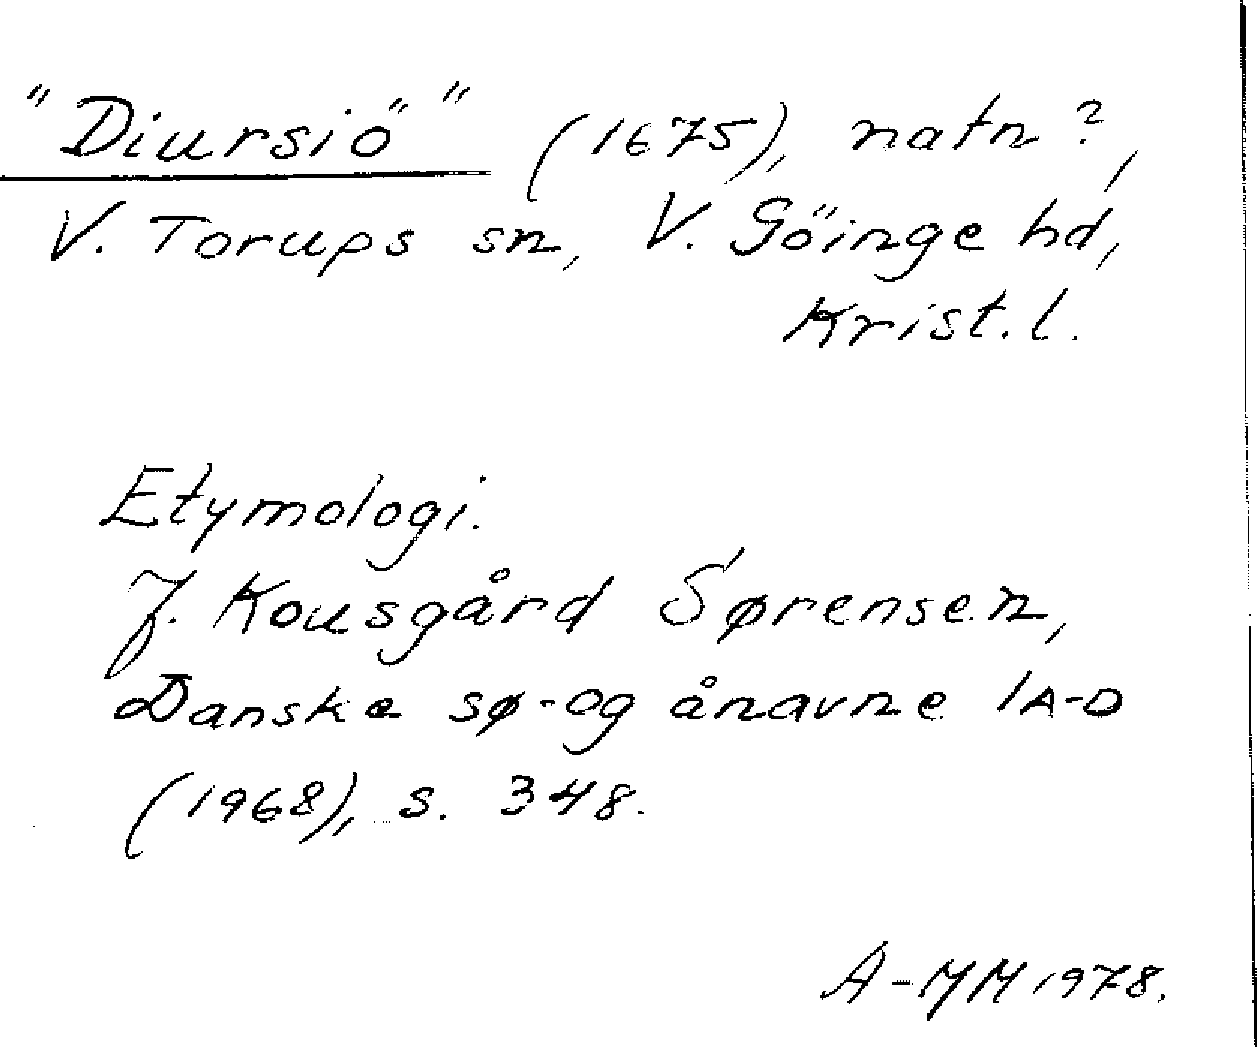 "Diursiö" (1675), natn?,
V. Torups sn, V. Göinge hd,
Krist. l.
Etymologi.
J. Kousgård Sørensen,
Danske sø-og ånavne 1A-D
(1968), s. 348.
A-MM 1978.